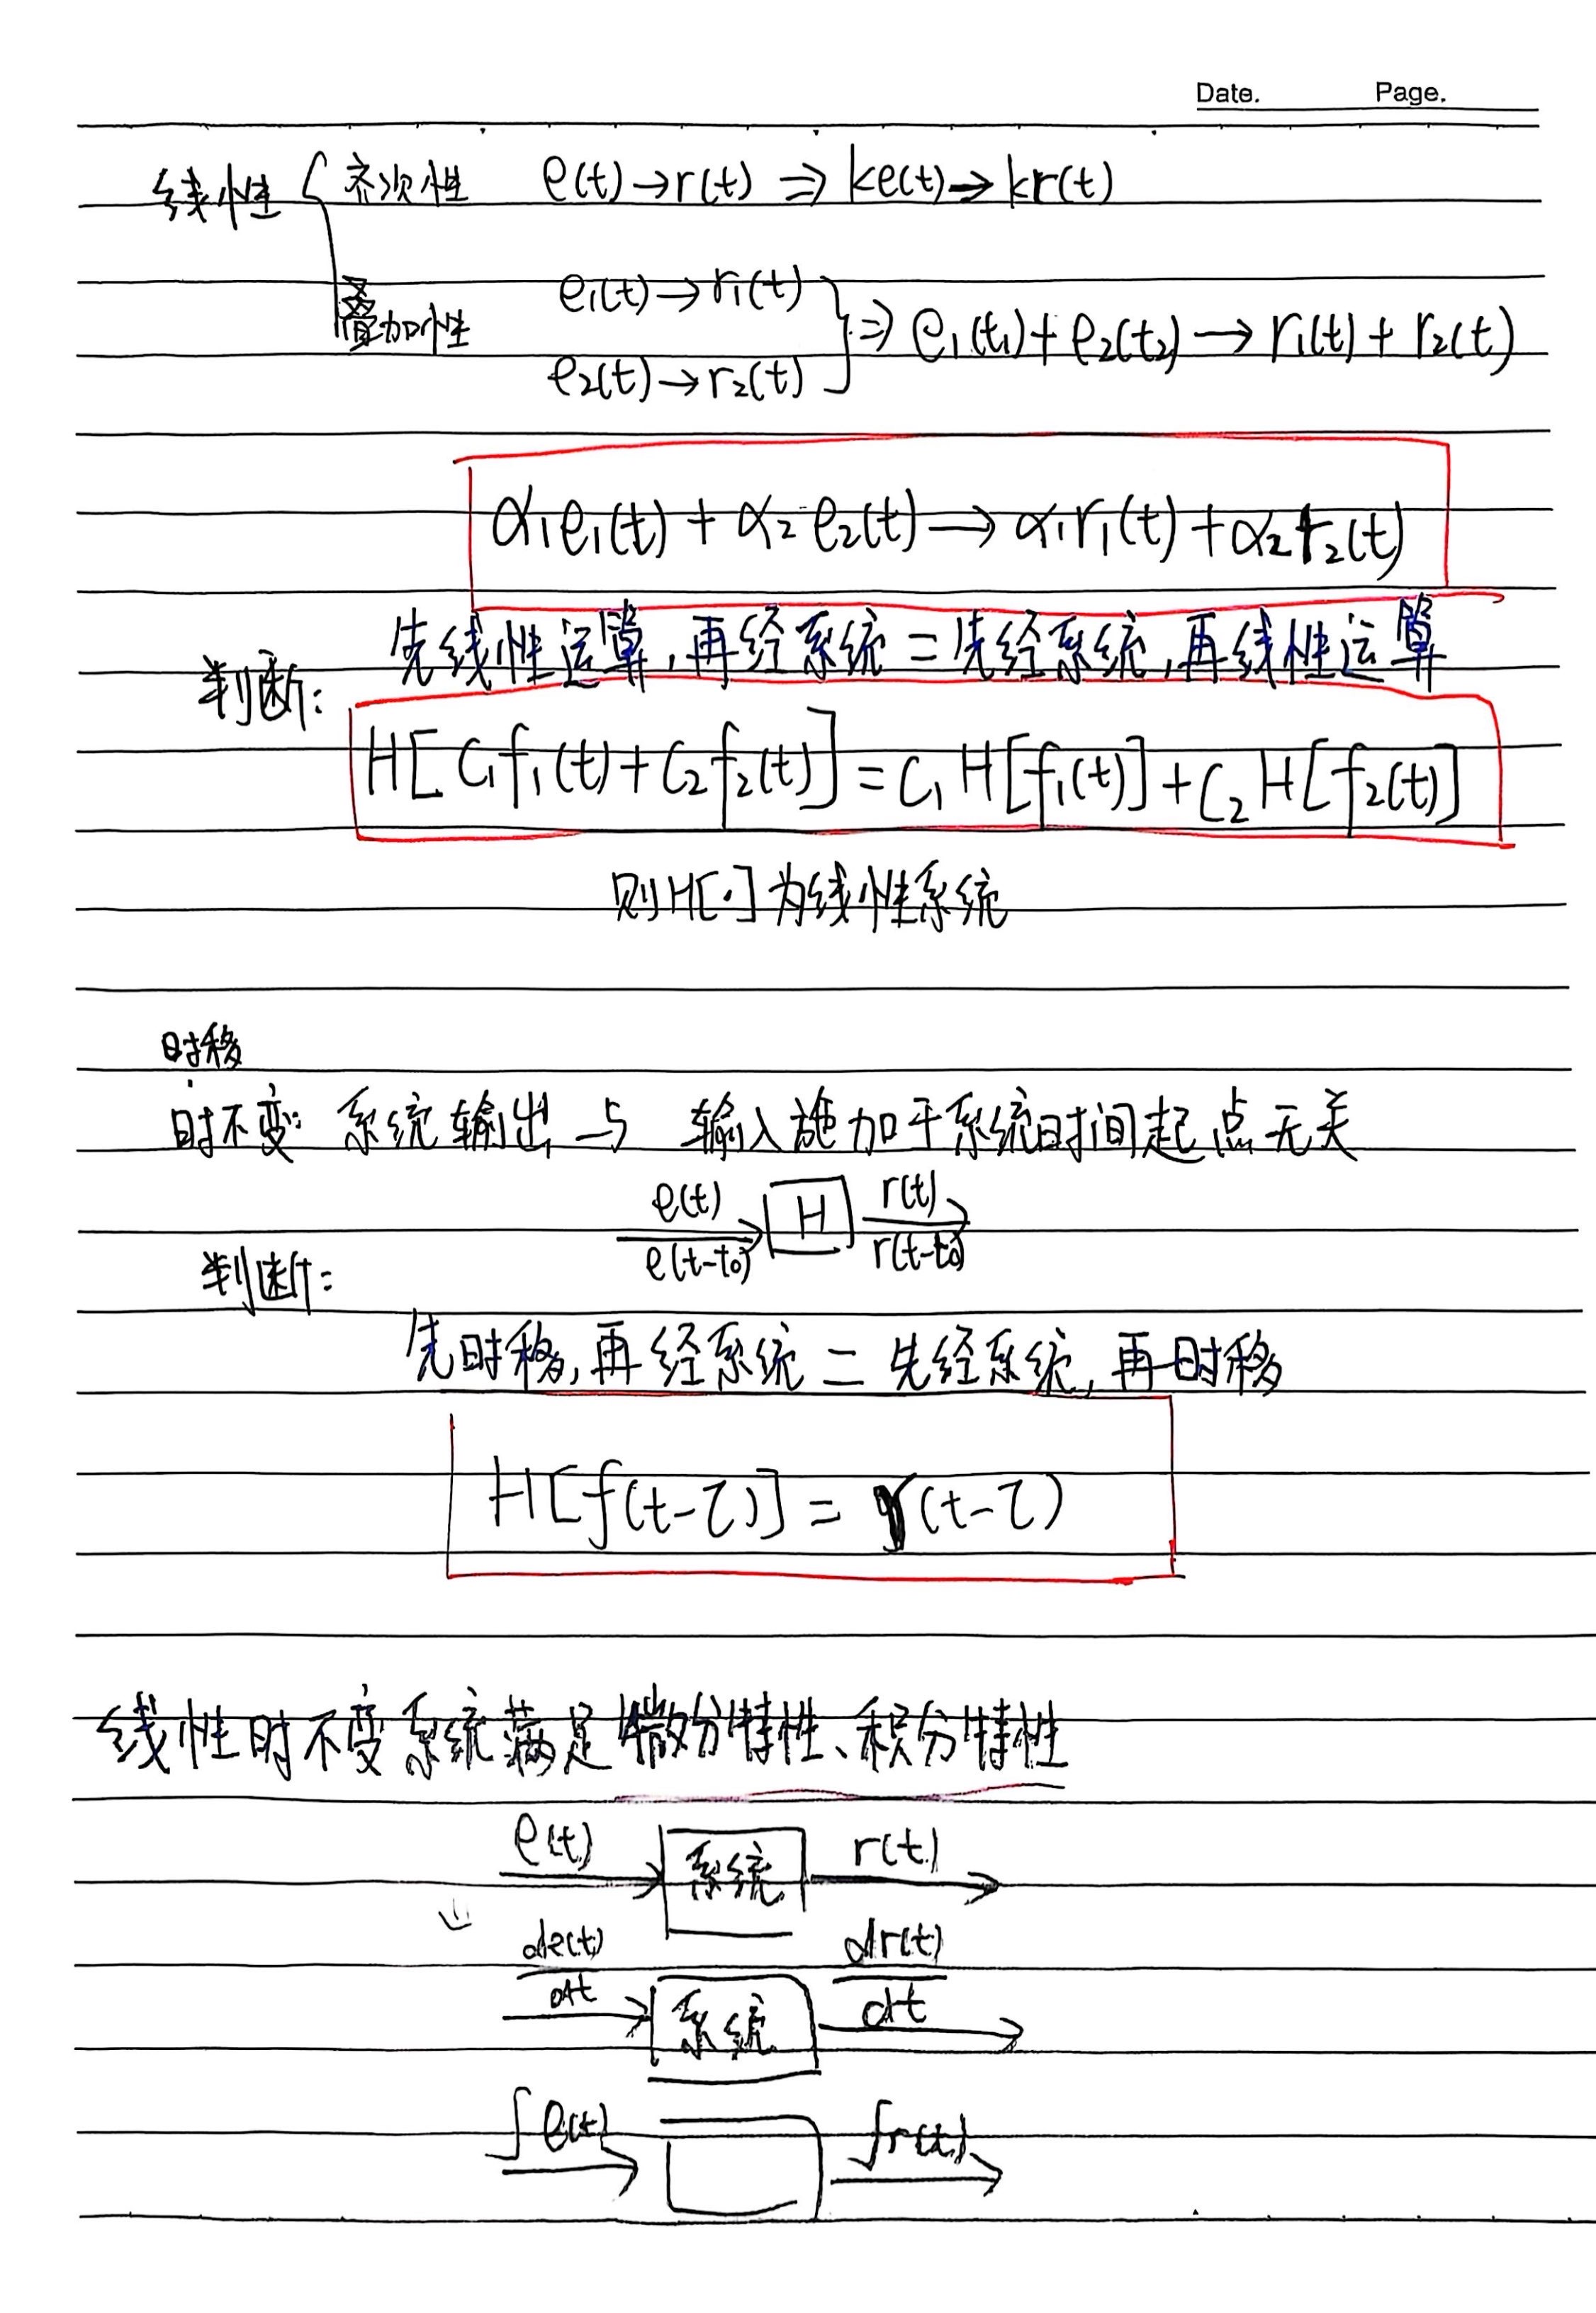 Date. Page.
线性 { 齐次性 e(t)→r(t) ⇒ ke(t)→kr(t)
叠加性 e₁(t)→r₁(t)
e₂(t)→r₂(t) } ⇒ e₁(t₁)+e₂(t₂)→r₁(t)+r₂(t)
α₁e₁(t)+α₂e₂(t)→α₁r₁(t)+α₂r₂(t)
先线性运算,再经系统=先经系统,再线性运算
判断:
H[C₁f₁(t)+C₂f₂(t)]=C₁H[f₁(t)]+C₂H[f₂(t)]
则H[·]为线性系统
时移
时不变: 系统输出与 输入施加于系统时间起点无关
e(t) H r(t)
e(t-t₀) r(t-t₀)
判断:
先时移,再经系统=先经系统,再时移
H[f(t-τ)]=y(t-τ)
线性时不变系统满足微分特性、积分特性
e(t) 系统 r(t)
⇓
de(t)/dt 系统 dr(t)/dt
∫e(t) ∫r(t)